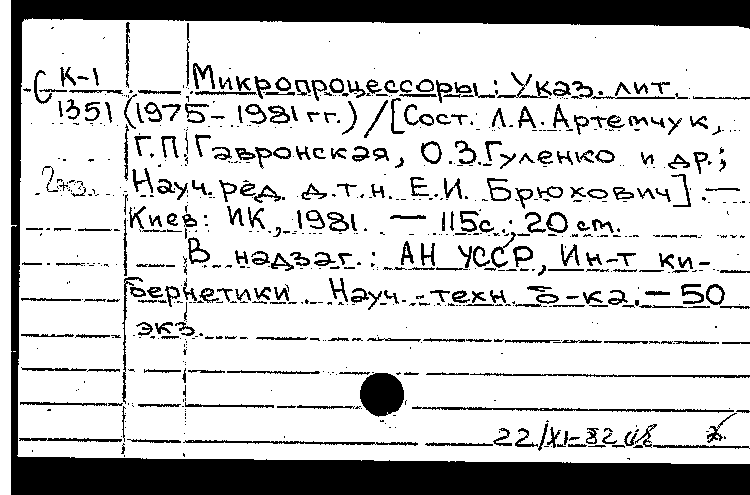 С К-1 Микропроцессоры: Указ. лит.
1351 (1975-1981 гг.) / [Сост. Л.А. Артемчук,
Г.П. Гавронская, О.З. Гуленко и др.;
2 экз. Науч. ред. д.т.н. Е.И. Брюхович]. —
Киев: ИК, 1981. — 115с.; 20 cm.
В надзаг.: АН УССР, Ин-т ки-
бернетики. Науч.-техн. б-ка. — 50
экз.
22/XI-82